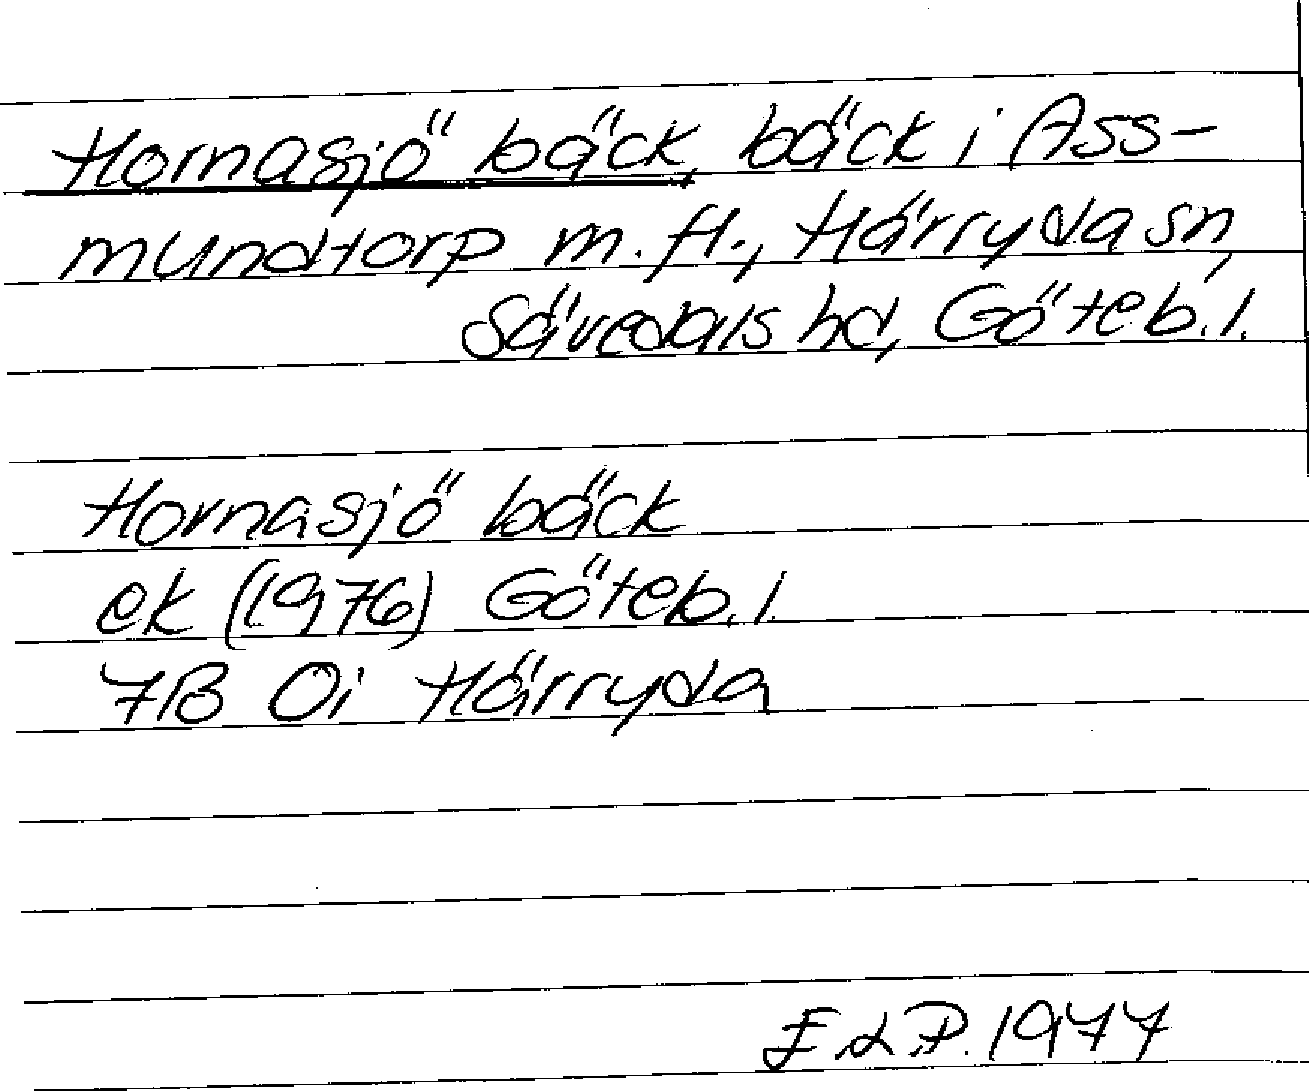 Hornasjö bäck, bäck i Ass-
mundtorp m.fl., Härryda sn,
Sävedals hd, Göteb.l.
Hornasjö bäck
ek (1976) Göteb.l.
7B 0i Härryda
E.d.P. 1977